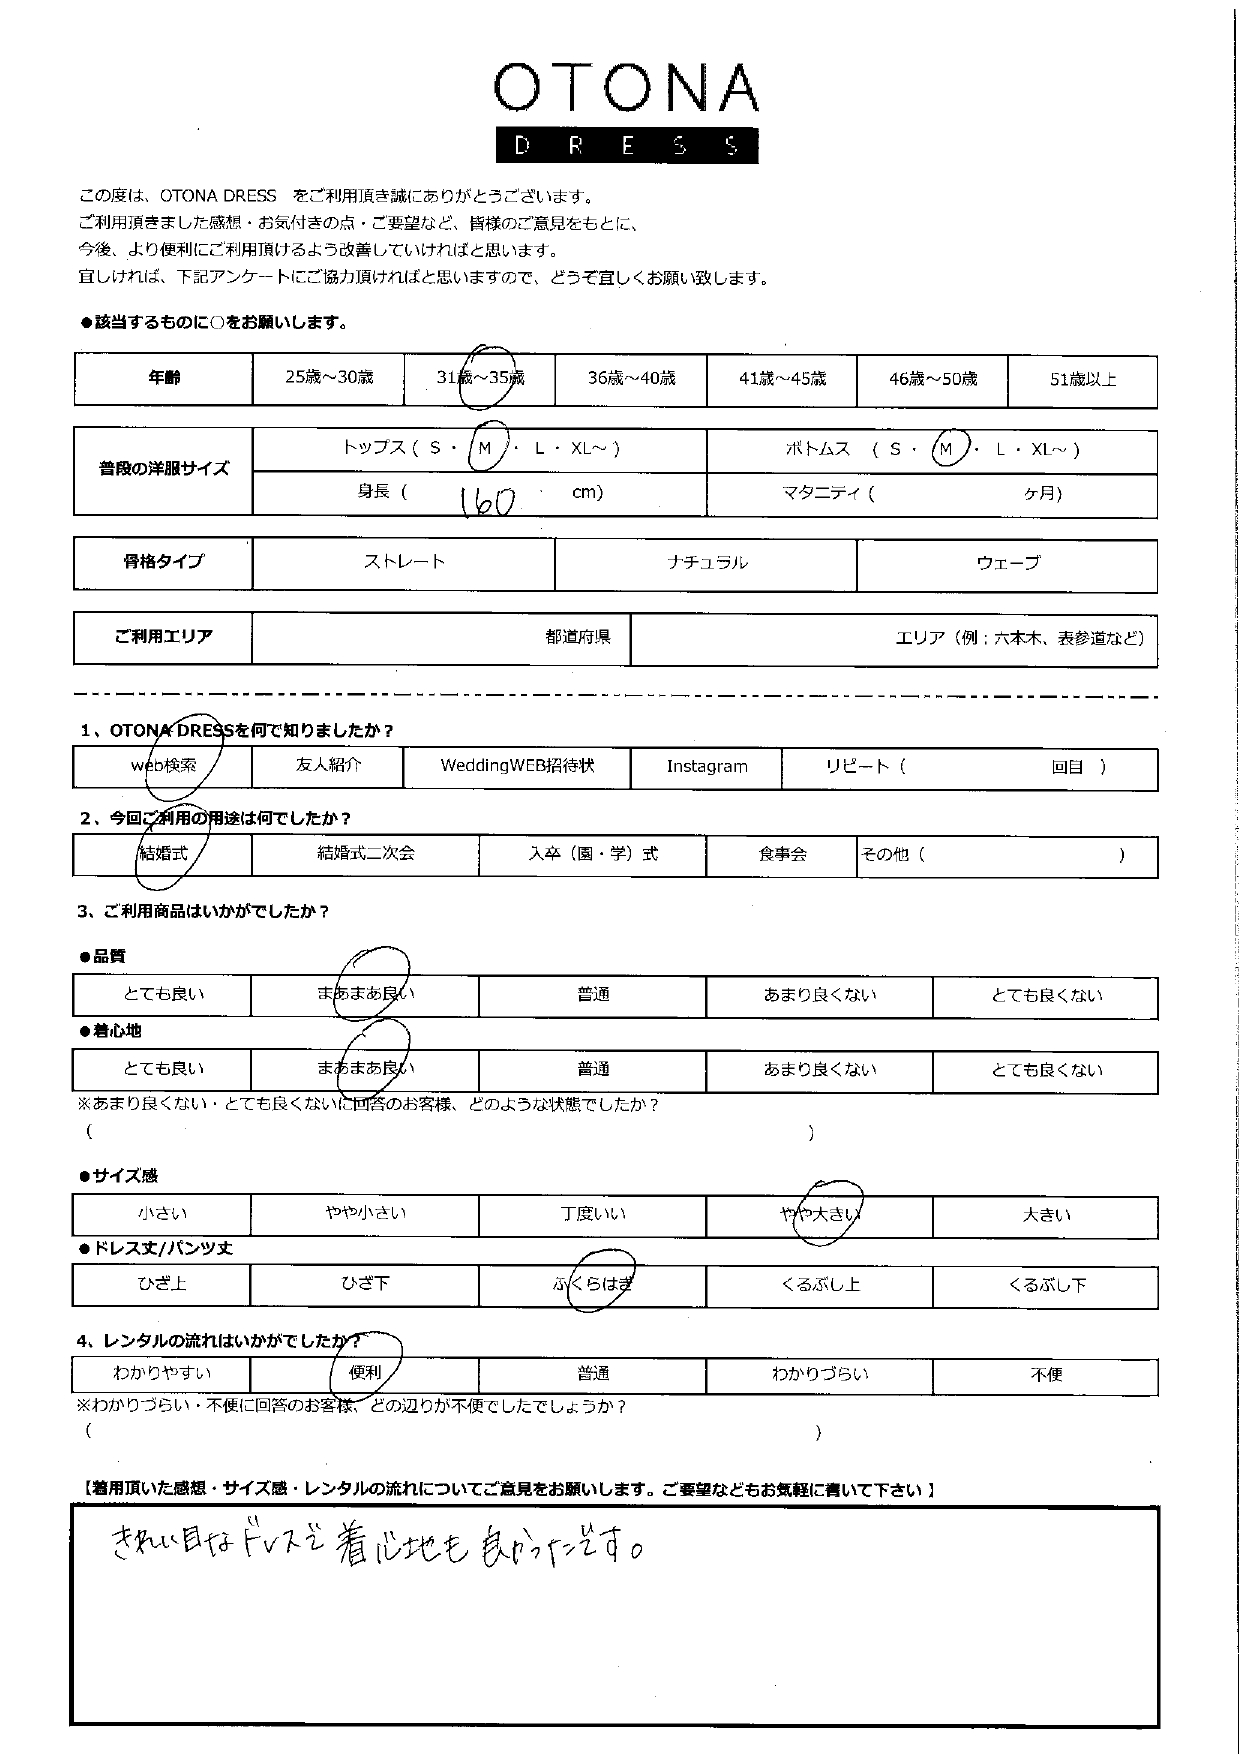 OTONA
DRESS
この度は、OTONA DRESS をご利用頂き誠にありがとうございます。
ご利用頂きました感想・お気付きの点・ご要望など、皆様のご意見をもとに、
今後、より便利にご利用頂けるよう改善していければと思います。
宜しければ、下記アンケートにご協力頂ければと思いますので、どうぞ宜しくお願い致します。
●該当するものに○をお願いします。
年齢 25歳～30歳 31歳～35歳 36歳～40歳 41歳～45歳 46歳～50歳 51歳以上
普段の洋服サイズ トップス ( S ・ M ・ L ・ XL～ ) ボトムス ( S ・ M ・ L ・ XL～ )
身長 ( 160 cm) マタニティ ( ケ月)
骨格タイプ ストレート ナチュラル ウェーブ
ご利用エリア 都道府県 エリア（例：六本木、表参道など）
1、OTONA DRESSを何で知りましたか？
web検索 友人紹介 WeddingWEB招待状 Instagram リピート ( 回目 )
2、今回ご利用の用途は何でしたか？
結婚式 結婚式二次会 入卒（園・学）式 食事会 その他 ( )
3、ご利用商品はいかがでしたか？
●品質
とても良い まあまあ良い 普通 あまり良くない とても良くない
●着心地
とても良い まあまあ良い 普通 あまり良くない とても良くない
※あまり良くない・とても良くないに回答のお客様、どのような状態でしたか？
( )
●サイズ感
小さい やや小さい 丁度いい やや大きい 大きい
●ドレス丈/パンツ丈
ひざ上 ひざ下 ふくらはぎ くるぶし上 くるぶし下
4、レンタルの流れはいかがでしたか？
わかりやすい 便利 普通 わかりづらい 不便
※わかりづらい・不便に回答のお客様、どの辺りが不便でしたでしょうか？
( )
【着用頂いた感想・サイズ感・レンタルの流れについてご意見をお願いします。ご要望などもお気軽に書いて下さい】
きれい目なドレスで着心地も良かったです。